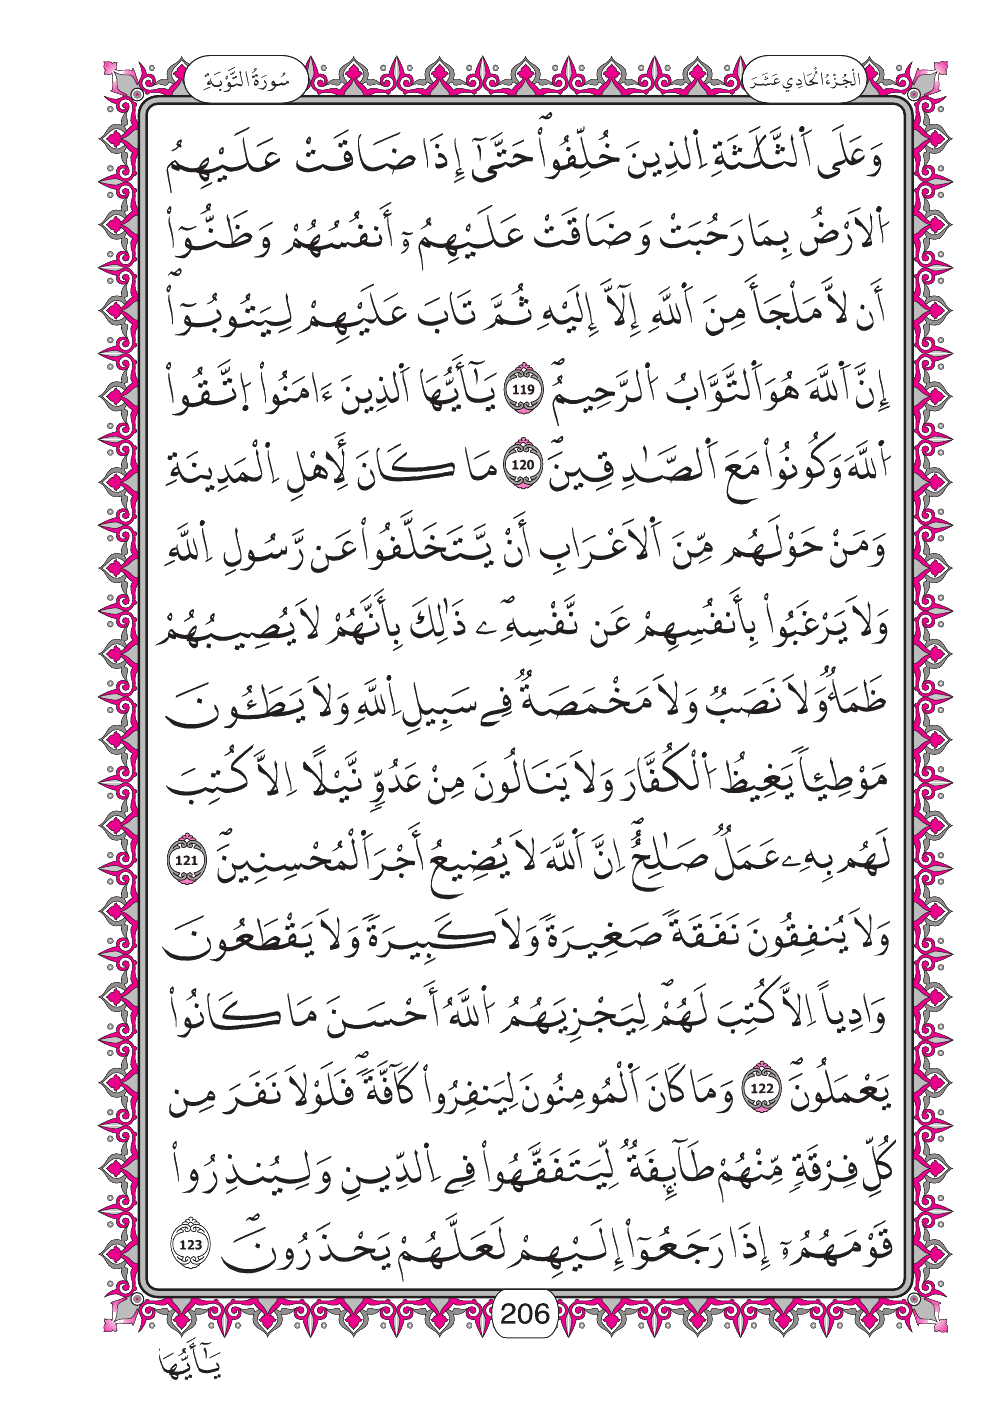 الجُزْءُ الْحَادِي عَشَرَ
سُورَةُ التَّوْبَةِ
وَعَلَى اَ۬لثَّلَٰثَةِ اِ۬لذِينَ خُلِّفُواْۖ حَتَّىٰٓ إِذَا ضَاقَتْ عَلَيْهِمُ
اُ۬لَارْضُ بِمَا رَحُبَتْ وَضَاقَتْ عَلَيْهِمُۥٓ أَنفُسُهُمْ وَظَنُّوٓاْ
أَن لَّا مَلْجَأَ مِنَ اَ۬للَّهِ إِلَّآ إِلَيْهِ ثُمَّ تَابَ عَلَيْهِمْ لِيَتُوبُوٓاْۖ
إِنَّ اَ۬للَّهَ هُوَ اَ۬لتَّوَّابُ اُ۬لرَّحِيمُۖ 119 يَٰٓأَيُّهَا اَ۬لذِينَ ءَامَنُواْ اُ۪تَّقُواْ
اُ۬للَّهَ وَكُونُواْ مَعَ اَ۬لصَّٰدِقِينَۖ 120 مَا كَانَ لِأَهْلِ اِ۬لْمَدِينَةِ
وَمَنْ حَوْلَهُم مِّنَ اَ۬لَاعْرَابِ أَنْ يَّتَخَلَّفُواْ عَن رَّسُولِ اِ۬للَّهِ
وَلَا يَرْغَبُواْ بِأَنفُسِهِمْ عَن نَّفْسِهِۦۖ ذَٰلِكَ بِأَنَّهُمْ لَا يُصِيبُهُمْ
ظَمَأٞ وَلَا نَصَبٞ وَلَا مَخْمَصَةٞ فِے سَبِيلِ اِ۬للَّهِ وَلَا يَطَـُٔونَ
مَوْطِئاٗ يَغِيظُ اُ۬لْكُفَّارَ وَلَا يَنَالُونَ مِنْ عَدُوّٖ نَّيْلًا اِلَّا كُتِبَ
لَهُم بِهِۦ عَمَلٞ صَٰلِحٌۖ اِنَّ اَ۬للَّهَ لَا يُضِيعُ أَجْرَ اَ۬لْمُحْسِنِينَۖ 121
وَلَا يُنفِقُونَ نَفَقَةٗ صَغِيرَةٗ وَلَا كَبِيرَةٗ وَلَا يَقْطَعُونَ
وَادِياً اِلَّا كُتِبَ لَهُمْۖ لِيَجْزِيَهُمُ اُ۬للَّهُ أَحْسَنَ مَا كَانُواْ
يَعْمَلُونَۖ 122 وَمَا كَانَ اَ۬لْمُومِنُونَ لِيَنفِرُواْ كَآفَّةٗۖ فَلَوْلَا نَفَرَ مِن
كُلِّ فِرْقَةٖ مِّنْهُمْ طَآئِفَةٞ لِّيَتَفَقَّهُواْ فِے اِ۬لدِّينِ وَلِيُنذِرُواْ
قَوْمَهُمُۥٓ إِذَا رَجَعُوٓاْ إِلَيْهِمْ لَعَلَّهُمْ يَحْذَرُونَۖ 123
206
يَٰٓأَيُّهَا